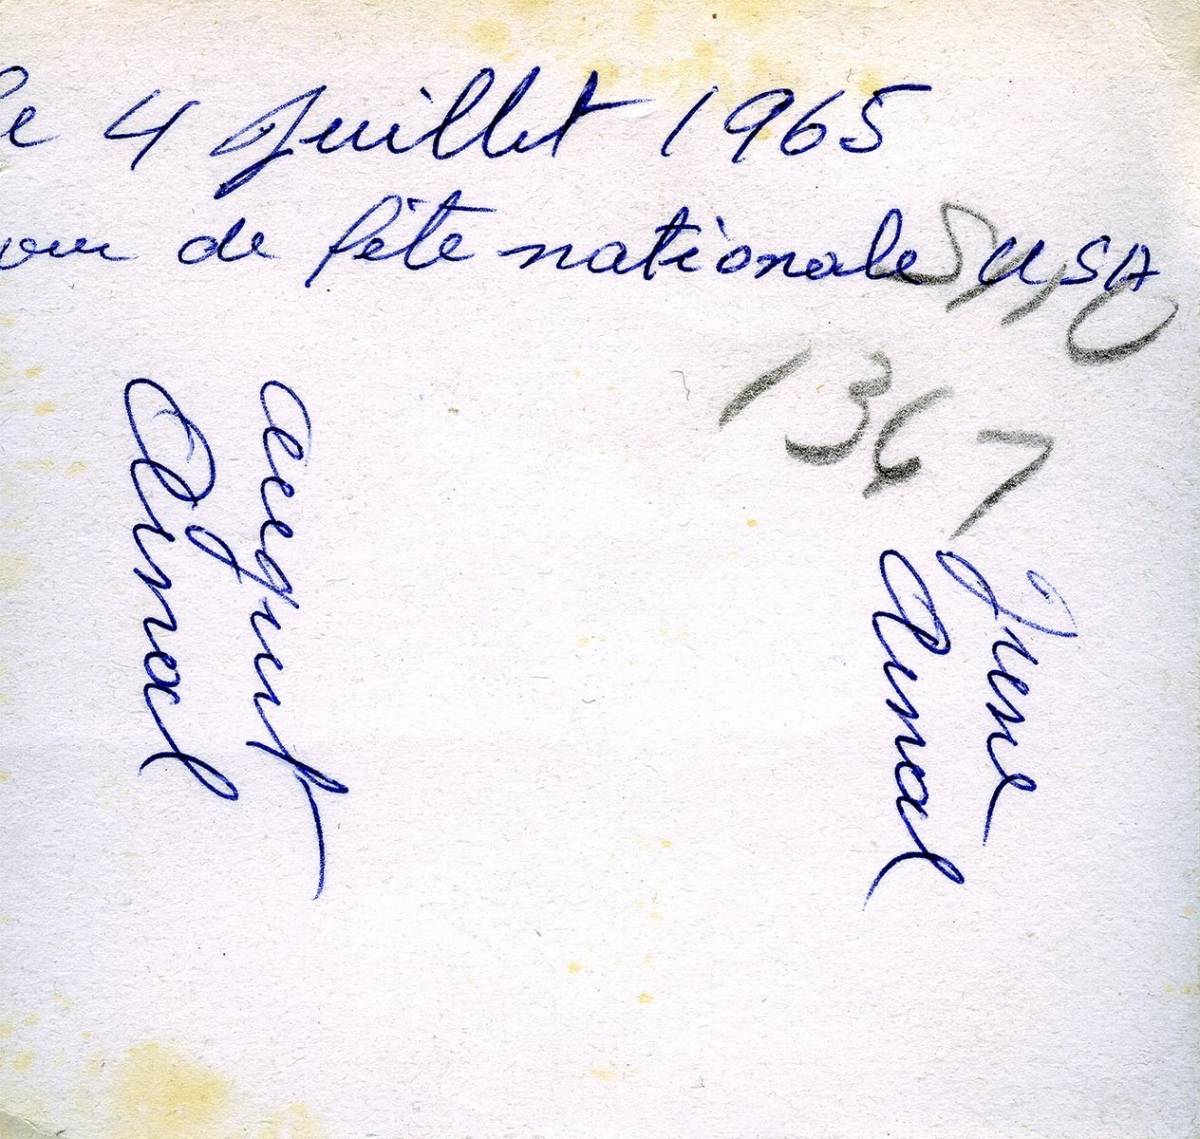 le 4 Juillet 1965
jour de fête nationale USA
1367
August
Aimal
Irene
Aimal